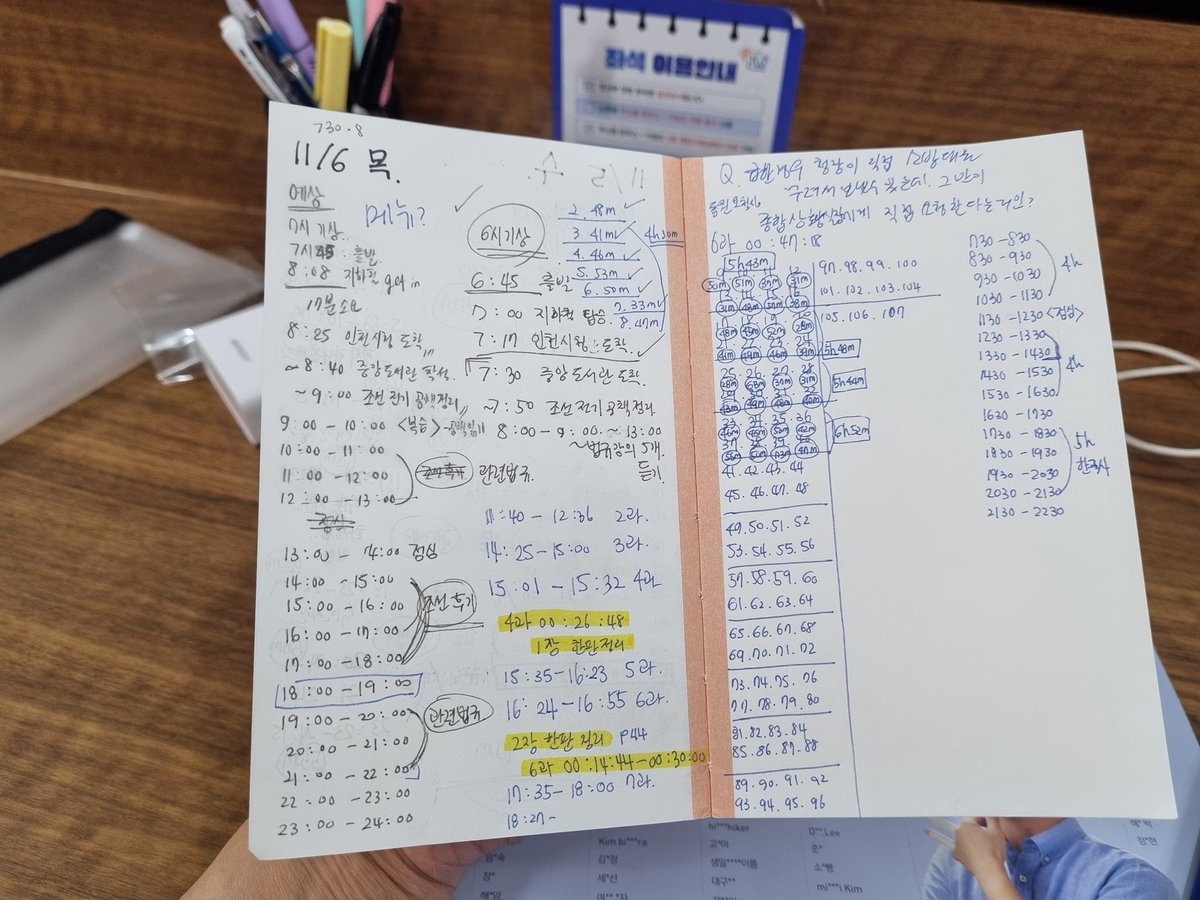 좌석 이용안내
730.8
11/6 목.
예상
메뉴?
7시 기상.
7시 45 출발
8:08 지하철 get in
17분소요
8:25 인천시청 도착
~8:40 중앙도서관 착석.
~9:00 조선전기 공책정리
9:00 - 10:00 <복습>
10:00 - 11:00
11:00 - 12:00
12:00 - 13:00
관련법규.
점심
13:00 - 14:00 점심
14:00 - 15:00
15:00 - 16:00 조선 후기
16:00 - 17:00
17:00 - 18:00
18:00 - 19:00
19:00 - 20:00 관련법규
20:00 - 21:00
21:00 - 22:00
22:00 - 23:00
23:00 - 24:00
6시기상
2. 48m
3. 41m
4. 46m
5. 53m
6. 50m
7. 33m
8. 47m
4h30m
6:45 출발
7:00 지하철 탑승
7:17 인천시청 도착.
7:30 중앙도서관 도착.
~7:50 조선전기 공책정리
8:00 - 9:00. ~ 13:00
~법규강의 5개.
듣기.
11:40 - 12:36 2과.
14:25 - 15:00 3과.
15:01 - 15:32 4과
4과 00:26:48
1장 한판정리
15:35 - 16:23 5과.
16:24 - 16:55 6과.
2장 한판 정리 P44
6과 00:14:44 - 00:30:00
17:35 - 18:00 7과.
18:27 -
종합상황실장에게 직접 요청한다는거인?
6과 00:47:18
5h43m
5h48m
5h44m
6h52m
41. 42. 43. 44
45. 46. 47. 48
49. 50. 51. 52
53. 54. 55. 56
57. 58. 59. 60
61. 62. 63. 64
65. 66. 67. 68
69. 70. 71. 72
73. 74. 75. 76
77. 78. 79. 80
81. 82. 83. 84
85. 86. 87. 88
89. 90. 91. 92
93. 94. 95. 96
97. 98. 99. 100
101. 102. 103. 104
105. 106. 107
730 - 830
830 - 930
930 - 1030
1030 - 1130
4h
1130 - 1230 <점심>
1230 - 1330
1330 - 1430
1430 - 1530
1530 - 1630
4h
1630 - 1730
1730 - 1830
1830 - 1930
1930 - 2030
2030 - 2130
5h
한국사
2130 - 2230
hi***hiker
D**.Lee
Kim bi***ra
고*마
준*
김*정
생일****이름
소*빵
세*선
대구**
mi***i Kim
정*현